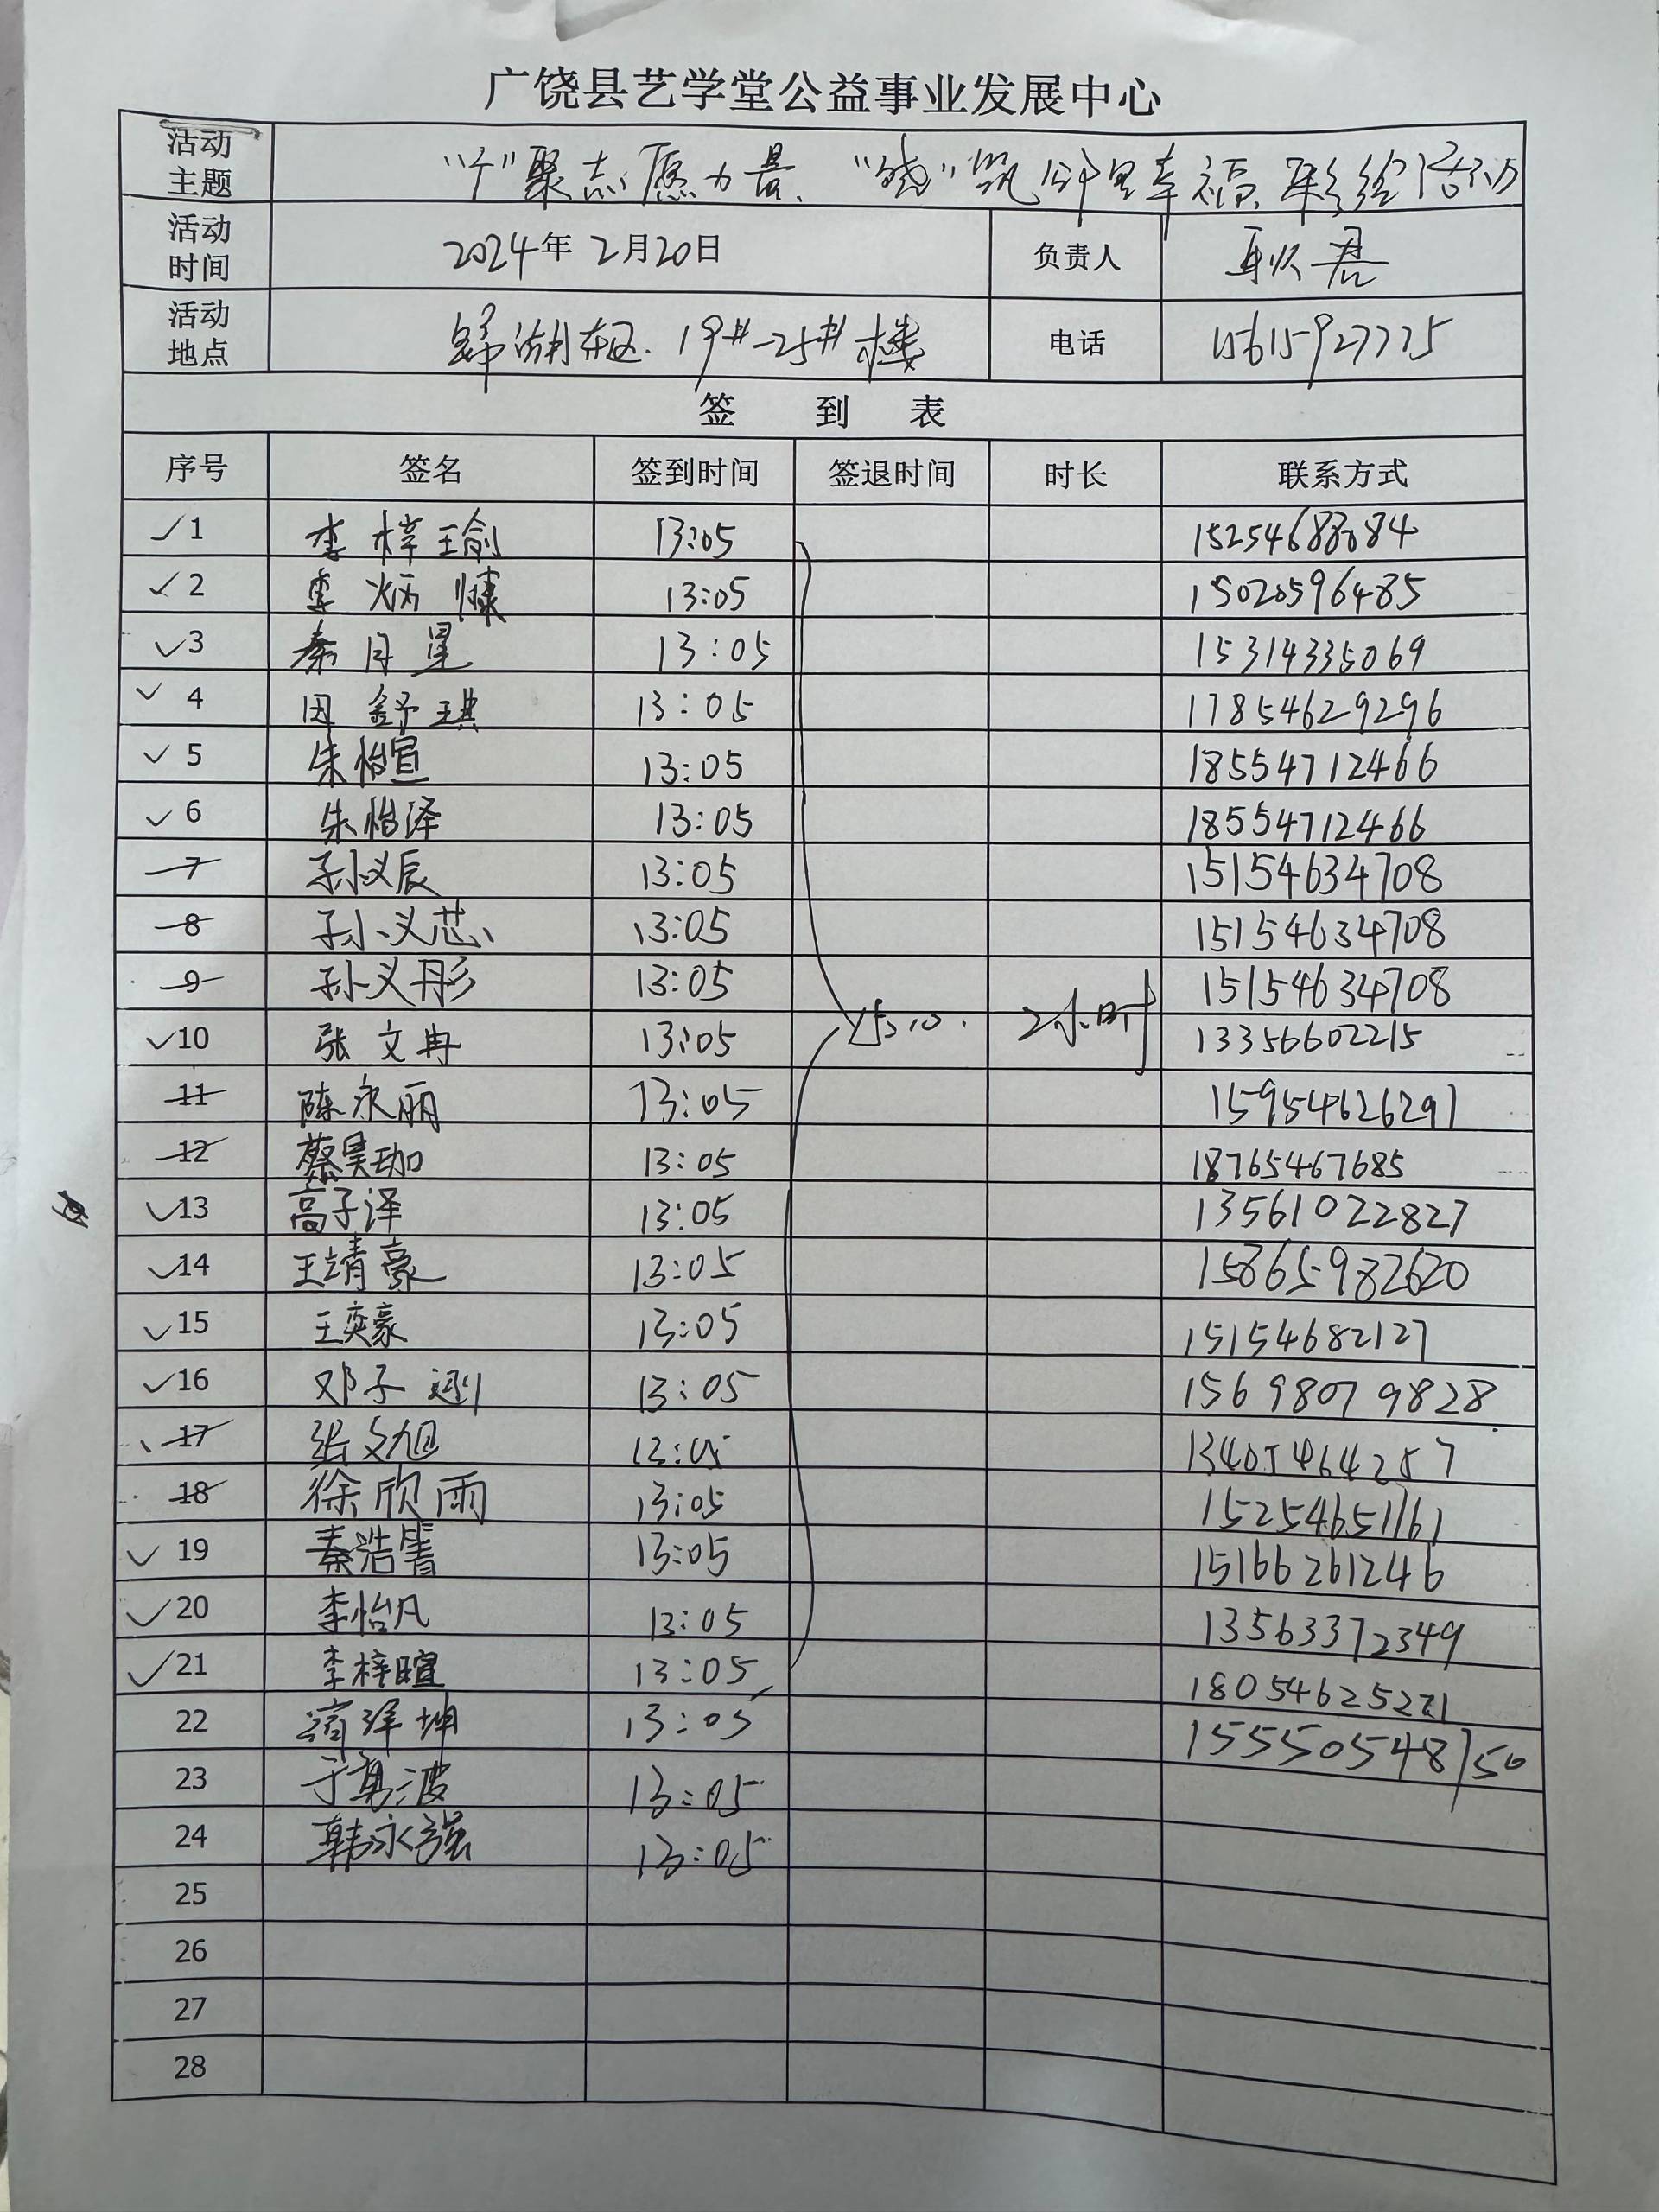 广饶县艺学堂公益事业发展中心
活动主题 "广"聚志愿力量、"饶"筑邻里幸福,彩绘活动
活动时间 2024年2月20日 负责人 耿君
活动地点 锦湖东区 19#-25#楼 电话 15615927775
签 到 表
序号 签名 签到时间 签退时间 时长 联系方式
1 李梓瑜 13:05 15254688084
2 李炳慷 13:05 15020596485
3 秦月星 13:05 15314335069
4 田舒琪 13:05 17854629296
5 朱怡宣 13:05 18554712466
6 朱怡泽 13:05 18554712466
7 孙义辰 13:05 15154634708
8 孙义芯 13:05 15154634708
9 孙义彤 13:05 15154634708
10 张文冉 13:05 15:10. 2小时 13356602215
11 陈永丽 13:05 15954626291
12 蔡昊珈 13:05 18765467685
13 高子泽 13:05 13561022827
14 王靖豪 13:05 15865982620
15 王奕豪 13:05 15154682127
16 邓子 13:05 15698079828
17 张文旭 13:05 13405464257
18 徐欣雨 13:05 15254651161
19 秦浩 13:05 15166261246
20 李怡凡 13:05 13563372349
21 李梓暄 13:05 18054625221
22 洋坤 13:05 15550548750
23 于勇波 13:05
24 韩永强 13:05
25
26
27
28